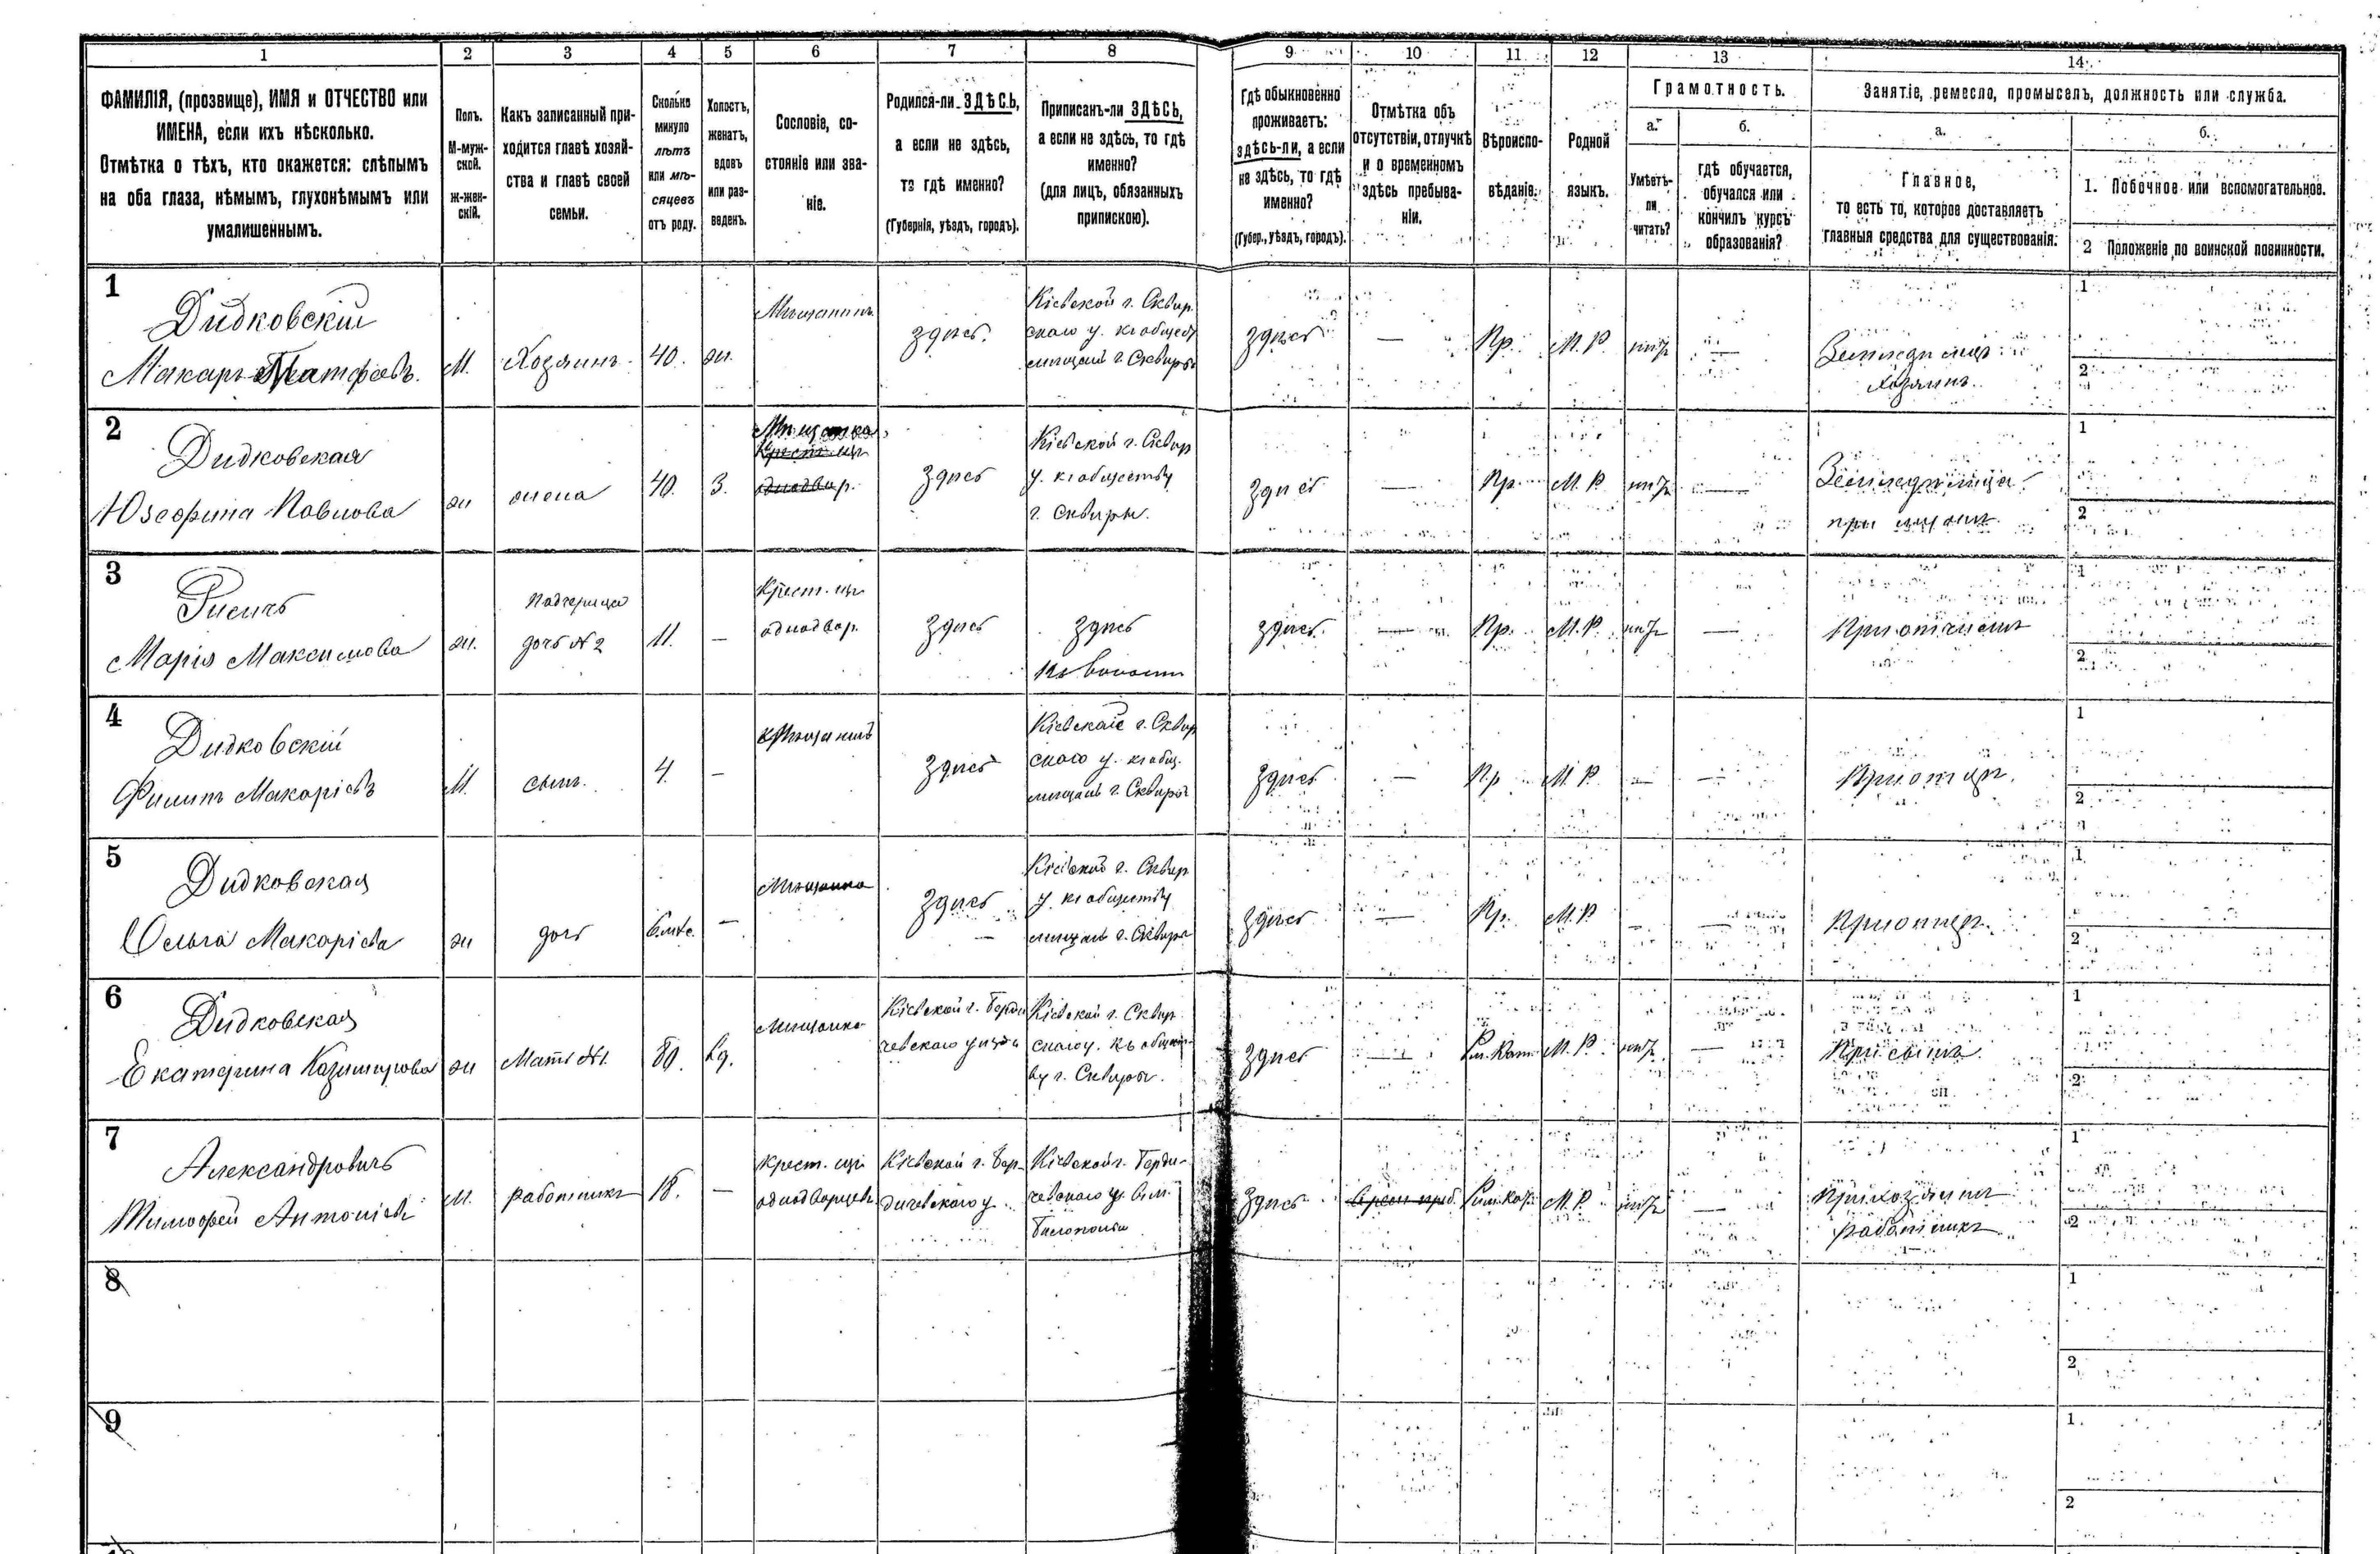 1 2 3 4 5 6 7 8 9 10 11 12 13 14
ФАМИЛІЯ, (прозвище), ИМЯ и ОТЧЕСТВО или
ИМЕНА, если ихъ нѣсколько.
Отмѣтка о тѣхъ, кто окажется: слѣпымъ
на оба глаза, нѣмымъ, глухонѣмымъ или
умалишеннымъ.
Полъ.
М-муж-
ской.
Ж-жен-
скій.
Какъ записанный при-
ходится главѣ хозяй-
ства и главѣ своей
семьи.
Сколько
минуло
лѣтъ
или мѣ-
сяцевъ
отъ роду.
Холостъ,
женатъ,
вдовъ
или раз-
веденъ.
Сословіе, со-
стояніе или зва-
ніе.
Родился-ли ЗДѢСЬ,
а если не здѣсь,
то гдѣ именно?
(Губернія, уѣздъ, городъ).
Приписанъ-ли ЗДѢСЬ,
а если не здѣсь, то гдѣ
именно?
(для лицъ, обязанныхъ
припискою).
Гдѣ обыкновенно
проживаетъ:
здѣсь-ли, а если
не здѣсь, то гдѣ
именно?
(Губер., уѣздъ, городъ).
Отмѣтка объ
отсутствіи, отлучкѣ
и о временномъ
здѣсь пребыва-
ніи.
Вѣроиспо-
вѣданіе.
Родной
языкъ.
Грамотность.
а.
Умѣетъ-
ли
читать?
б.
гдѣ обучается,
обучался или
кончилъ курсъ
образованія?
Занятіе, ремесло, промыселъ, должность или служба.
а.
Главное,
то есть то, которое доставляетъ
главныя средства для существованія.
б.
1. Побочное или вспомогательное.
2 Положеніе по воинской повинности.
1
Дидковскій
Макаръ Матфѣевъ.
М.
Хозяинъ
40.
жн.
Мѣщанинъ
здѣсь.
Кіевской г. Сквир
скаго у. къ общест
мѣщанъ г. Сквиры
здѣсь
—
Пр.
М. Р.
нѣтъ
—
Хозяинъ.
1
2
2
Дидковская
Юзефина Павлова
жн
жена
40.
З.
Мѣщанка
Крест. изъ
однодвор.
здѣсь
Кіевской г. Сквир
у. къ обществу
г. Сквиры.
здѣсь
—
Пр.
М. Р.
нѣтъ
—
при мужѣ
1
2
3
Марія Максимова
жн.
Падчерица
дочь №2
11.
—
Крест. изъ
однодвор.
здѣсь
здѣсь
къ волости
здѣсь.
—
Пр.
М. Р.
нѣтъ
—
При отчимѣ
1
2
4
Дидковскій
Филипъ Макаріевъ
М.
сынъ.
4.
—
здѣсь
Кіевской г. Сквир
скаго у. къ общ.
мѣщанъ г. Сквиры
здѣсь
—
Пр
М. Р.
—
—
При отцѣ.
1
2
5
Дидковская
Ольга Макаріева
жн
дочь
6 мѣс.
—
Мѣщанка
здѣсь
Кіевской г. Сквир
у. къ обществу
мѣщанъ г. Сквиры
здѣсь
—
Пр.
М. Р
—
—
При отцѣ.
1
2
6
Дидковская
Екатерина Казимирова
жн
Мать №1.
80.
вд.
Мѣщанка
Кіевской г. Берди
чевскаго уѣзда
Кіевской г. Сквир
скаго у. къ общест
ву г. Сквиры.
здѣсь
—
Рим. Кат.
М. Р.
нѣтъ.
—
При сынѣ
1
2
7
Александровичъ
Тимофей Антоніевъ
М.
работникъ
18.
—
Крест. изъ
однодворцевъ
Кіевской г. Бер-
дичевскаго у.
Кіевской г. Берди-
чевскаго у.
здѣсь
Рим. Кат.
М. Р.
нѣтъ
—
При хозяинѣ
работникъ
1
2
8
1
2
9
1
2